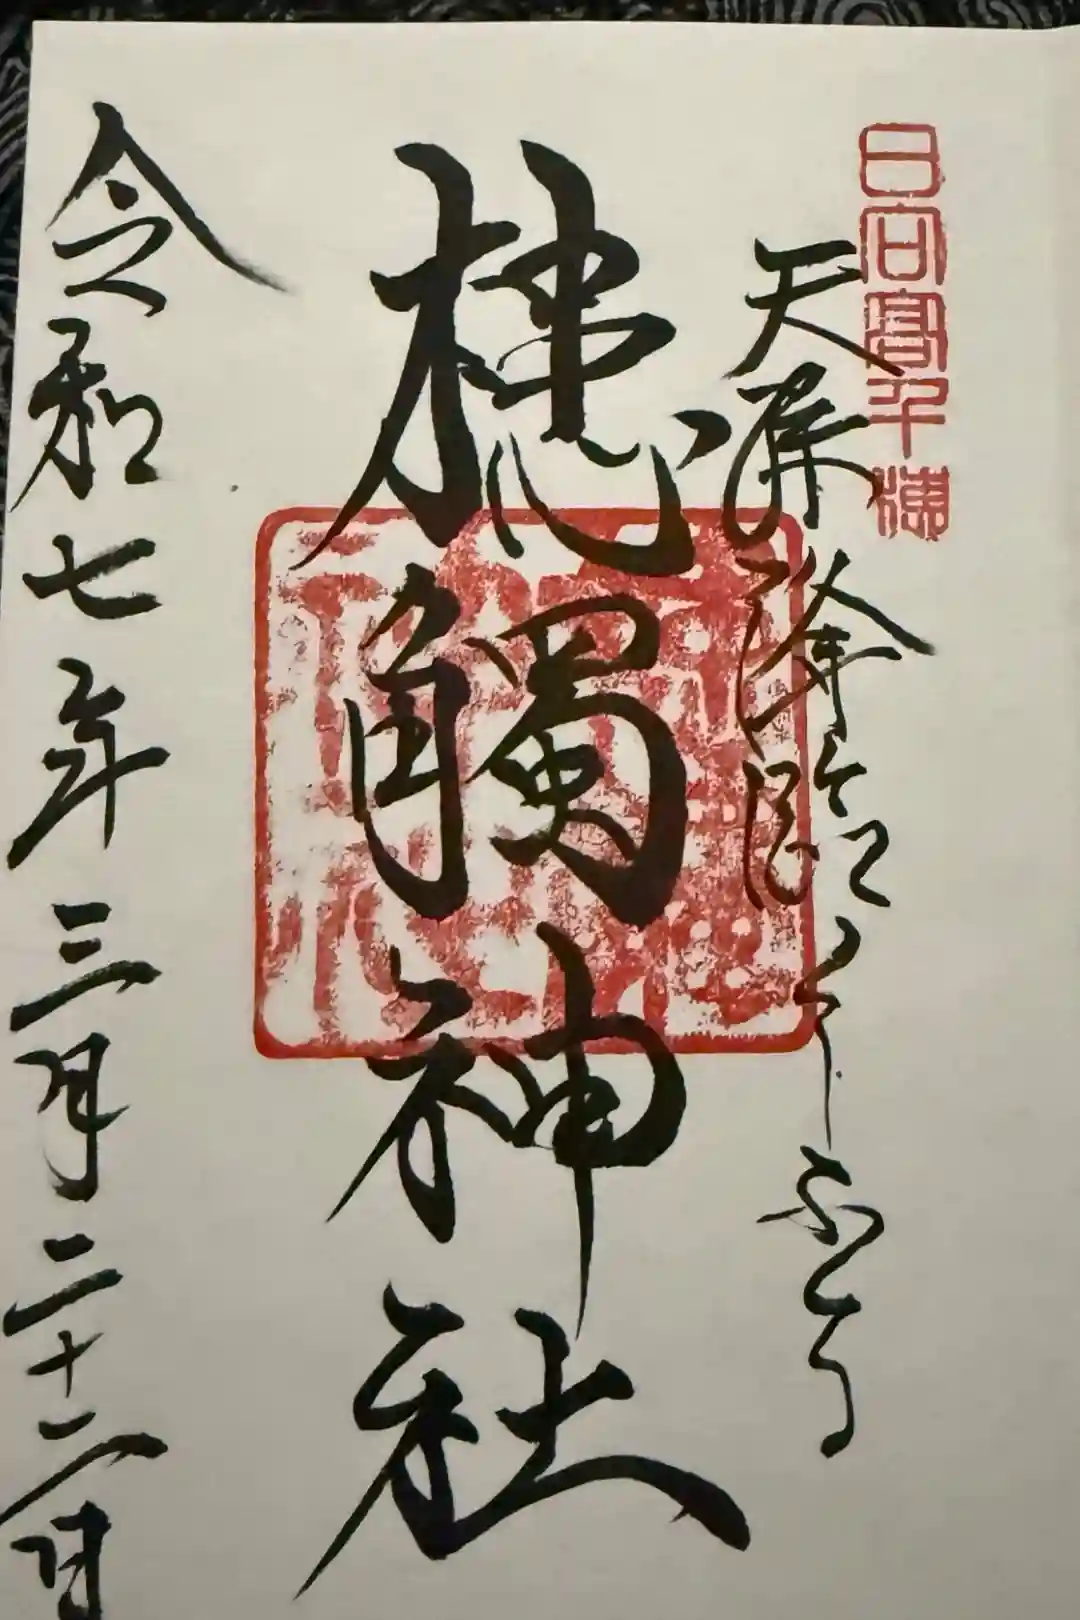 日向高千穂
天孫降臨くしふる
槵觸神社
令和七年三月二十二日